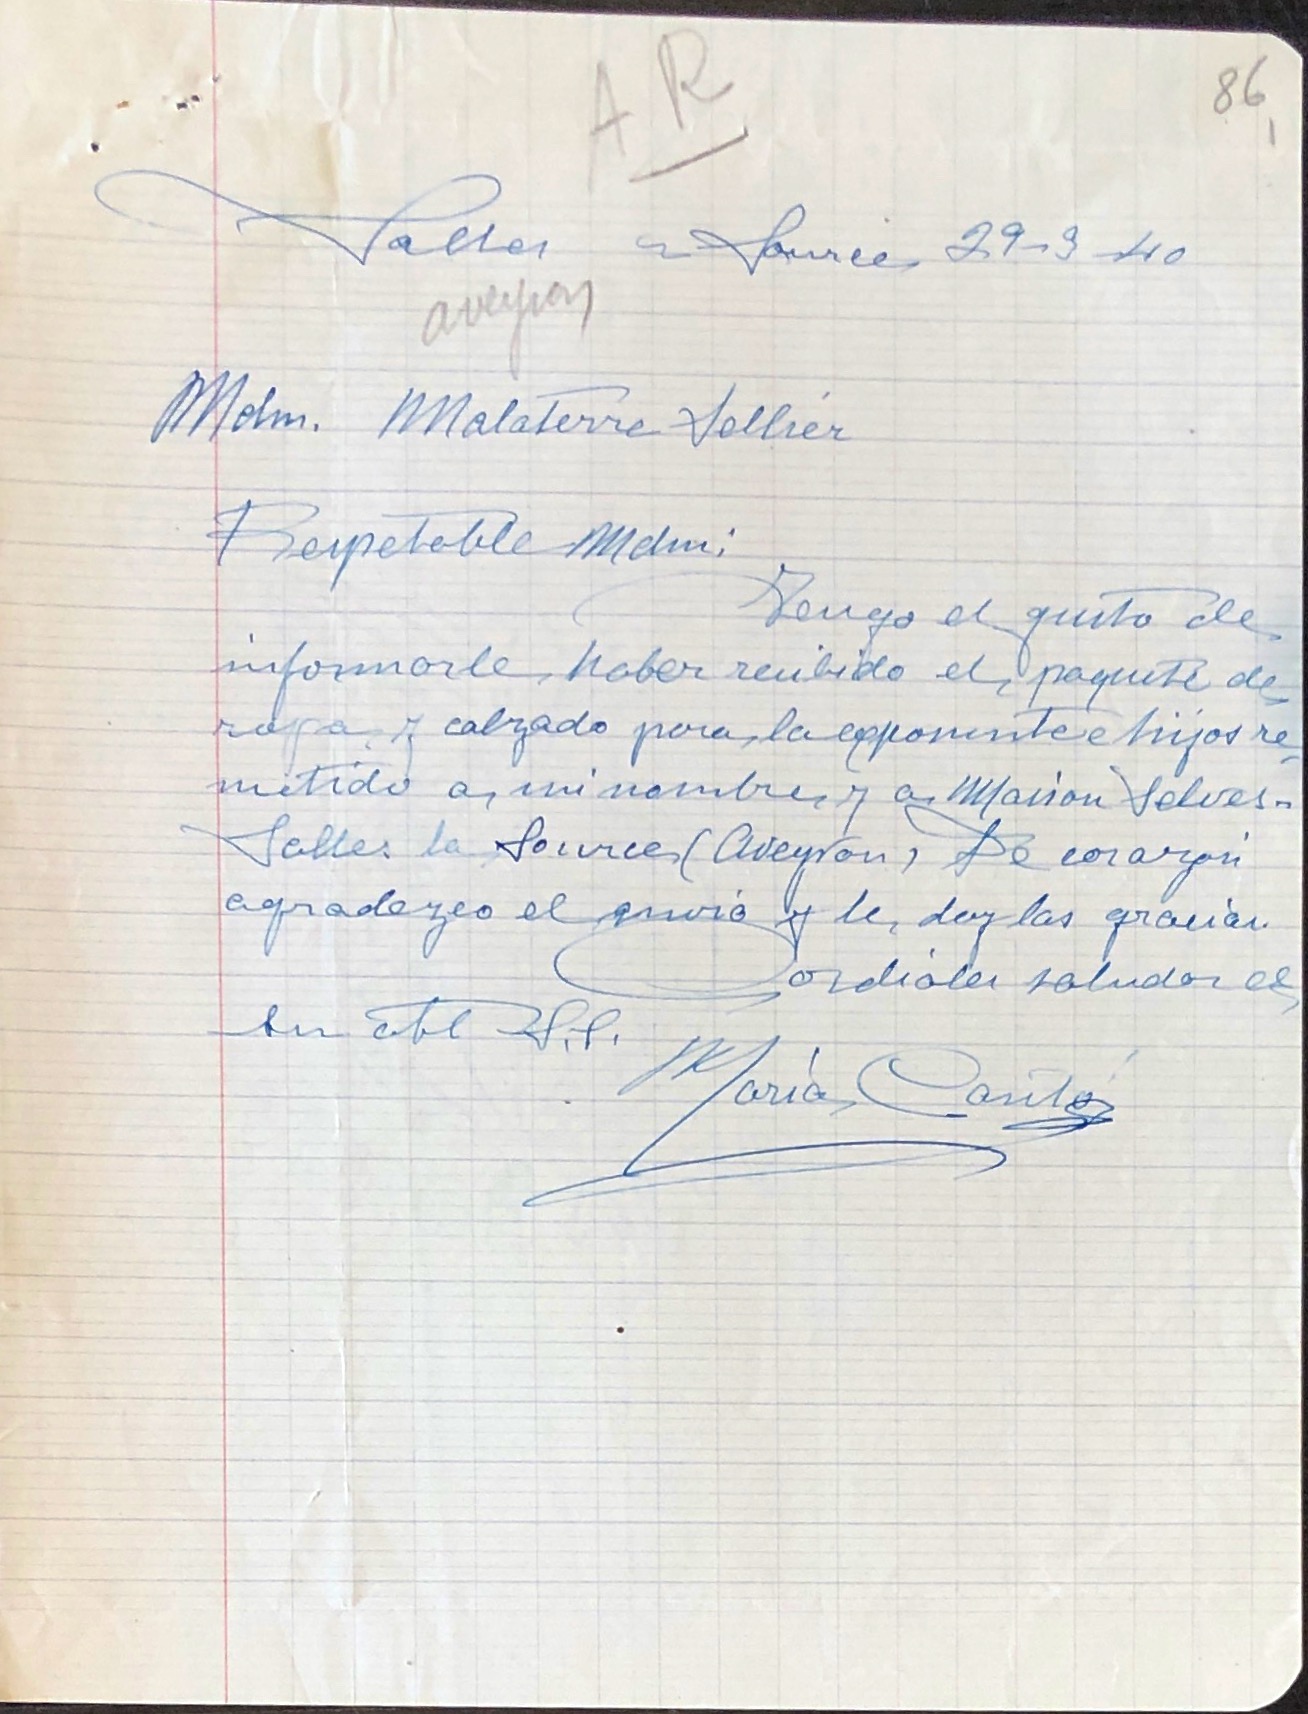 AR
86
Salles a Source 29-3-40
aveyron
Mdm. Malaterre Sellier
Respetable Mdm:
Tengo el gusto de
informarle haber recibido el paquete de
ropa y calzado para la exponente e hijos re-
mitido a mi nombre y a Maison Selves-
Salles la Source (Aveyron) De corazón
agradezco el envió y le doy las gracias.
Cordiales saludos de
su att S.S.
María Cantó